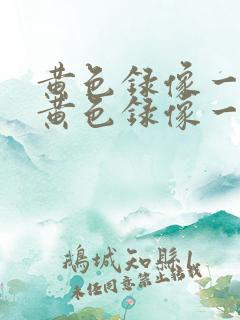 黄色録像一
黄色録像一
鵝城知縣1
未任同意禁止转载